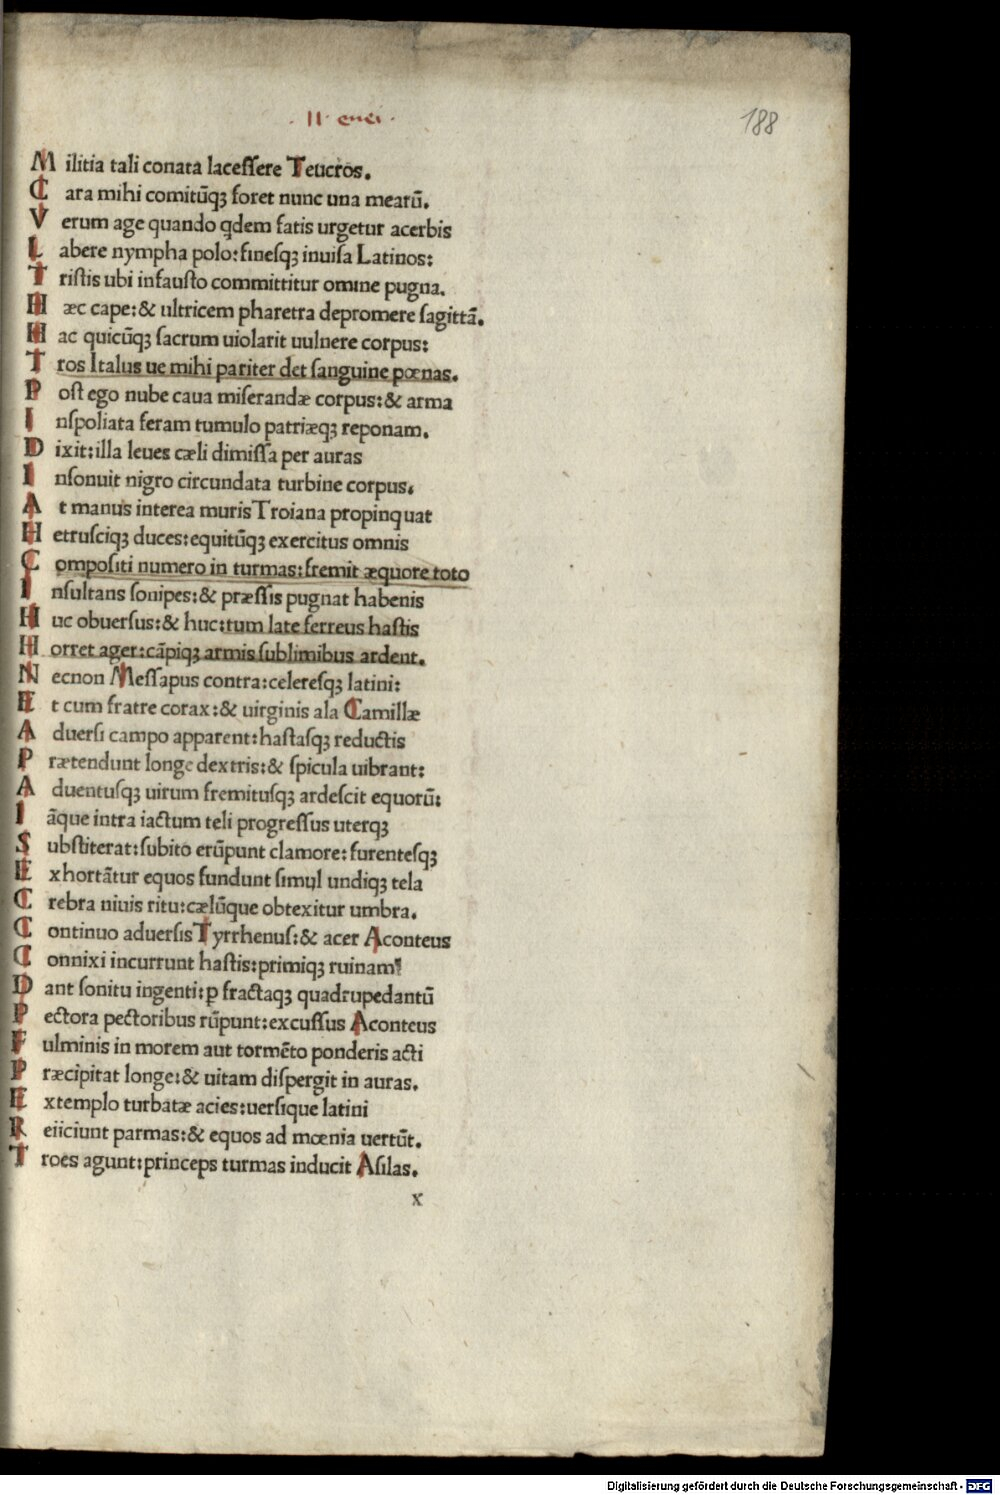 ·II· enei·
188
Militia tali conata lacessere Teucros.
Cara mihi comitūqꝫ foret nunc una mearū.
Verum age quando qdem fatis urgetur acerbis
Labere nympha polo: finesqꝫ inuisa Latinos:
Tristis ubi infausto committitur omine pugna.
Hæc cape: & ultricem pharetra depromere sagittā.
Hac quicūqꝫ sacrum uiolarit uulnere corpus:
Tros Italus ue mihi pariter det sanguine pœnas.
Post ego nube caua miserandæ corpus: & arma
Inspoliata feram tumulo patriæqꝫ reponam.
Dixit: illa leues cæli dimissa per auras
Insonuit nigro circundata turbine corpus.
At manus interea muris Troiana propinquat
Hetrusciqꝫ duces: equitūqꝫ exercitus omnis
Compositi numero in turmas: fremit æquore toto
Insultans sonipes: & præssis pugnat habenis
Huc obuersus: & huc: tum late ferreus hastis
Horret ager: cāpiqꝫ armis sublimibus ardent.
Necnon Messapus contra: celeresqꝫ latini:
Et cum fratre corax: & uirginis ala Camillæ
Aduersi campo apparent: hastasqꝫ reductis
Prætendunt longe dextris: & spicula uibrant:
Aduentusqꝫ uirum fremitusqꝫ ardescit equorū:
Iāque intra iactum teli progressus uterqꝫ
Substiterat: subito erūpunt clamore: furentesqꝫ
Exhortātur equos fundunt simul undiqꝫ tela
Crebra niuis ritu: cælūque obtexitur umbra.
Continuo aduersis Tyrrhenus: & acer Aconteus
Connixi incurrunt hastis: primiqꝫ ruinam
Dant sonitu ingenti: ꝑ fractaqꝫ quadrupedantū
Pectora pectoribus rūpunt: excussus Aconteus
Fulminis in morem aut tormēto ponderis acti
Præcipitat longe: & uitam dispergit in auras.
Extemplo turbatæ acies: uersique latini
Reiiciunt parmas: & equos ad mœnia uertūt.
Troes agunt: princeps turmas inducit Asilas.
x
Digitalisierung gefördert durch die Deutsche Forschungsgemeinschaft - DFG